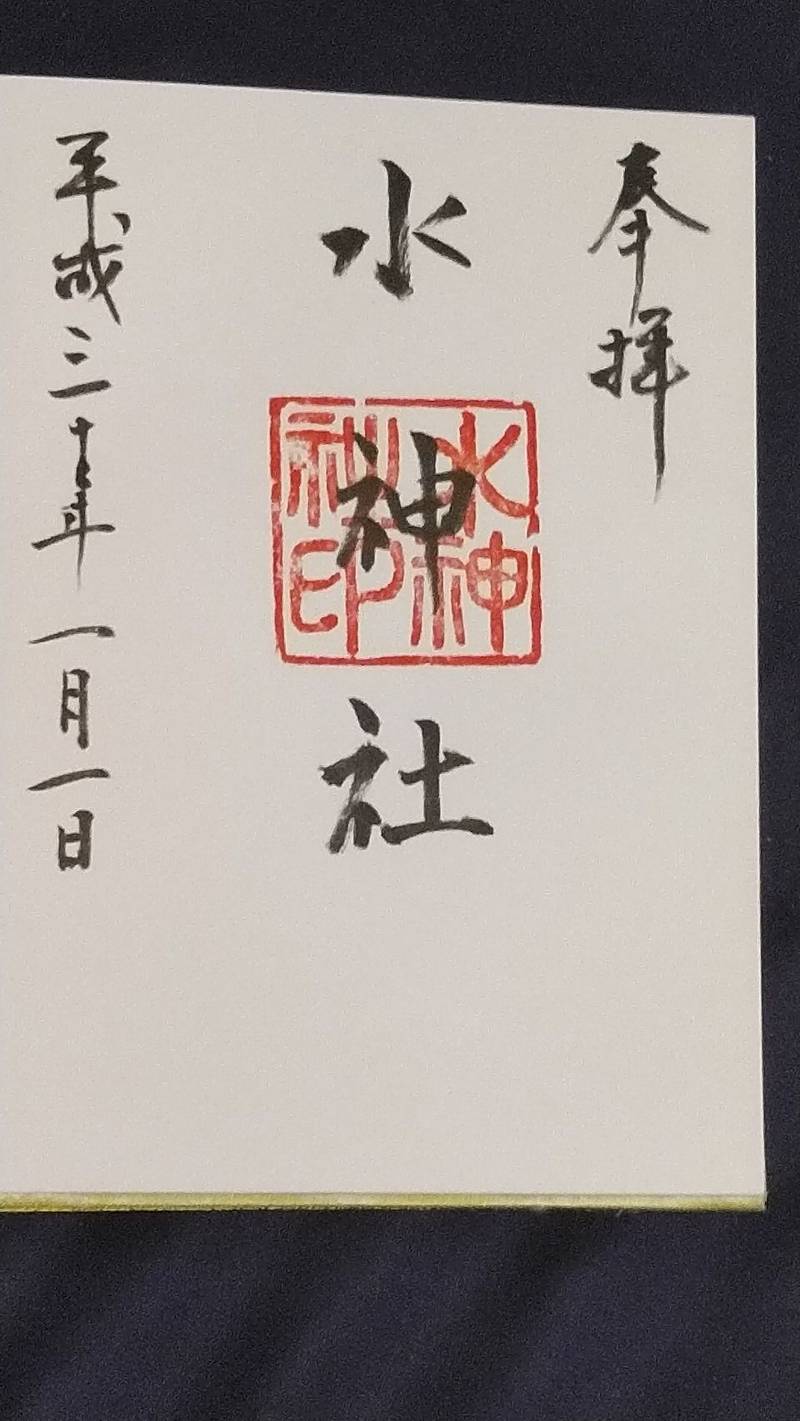 奉拝
水神社
水神
社印
平成三十年一月一日